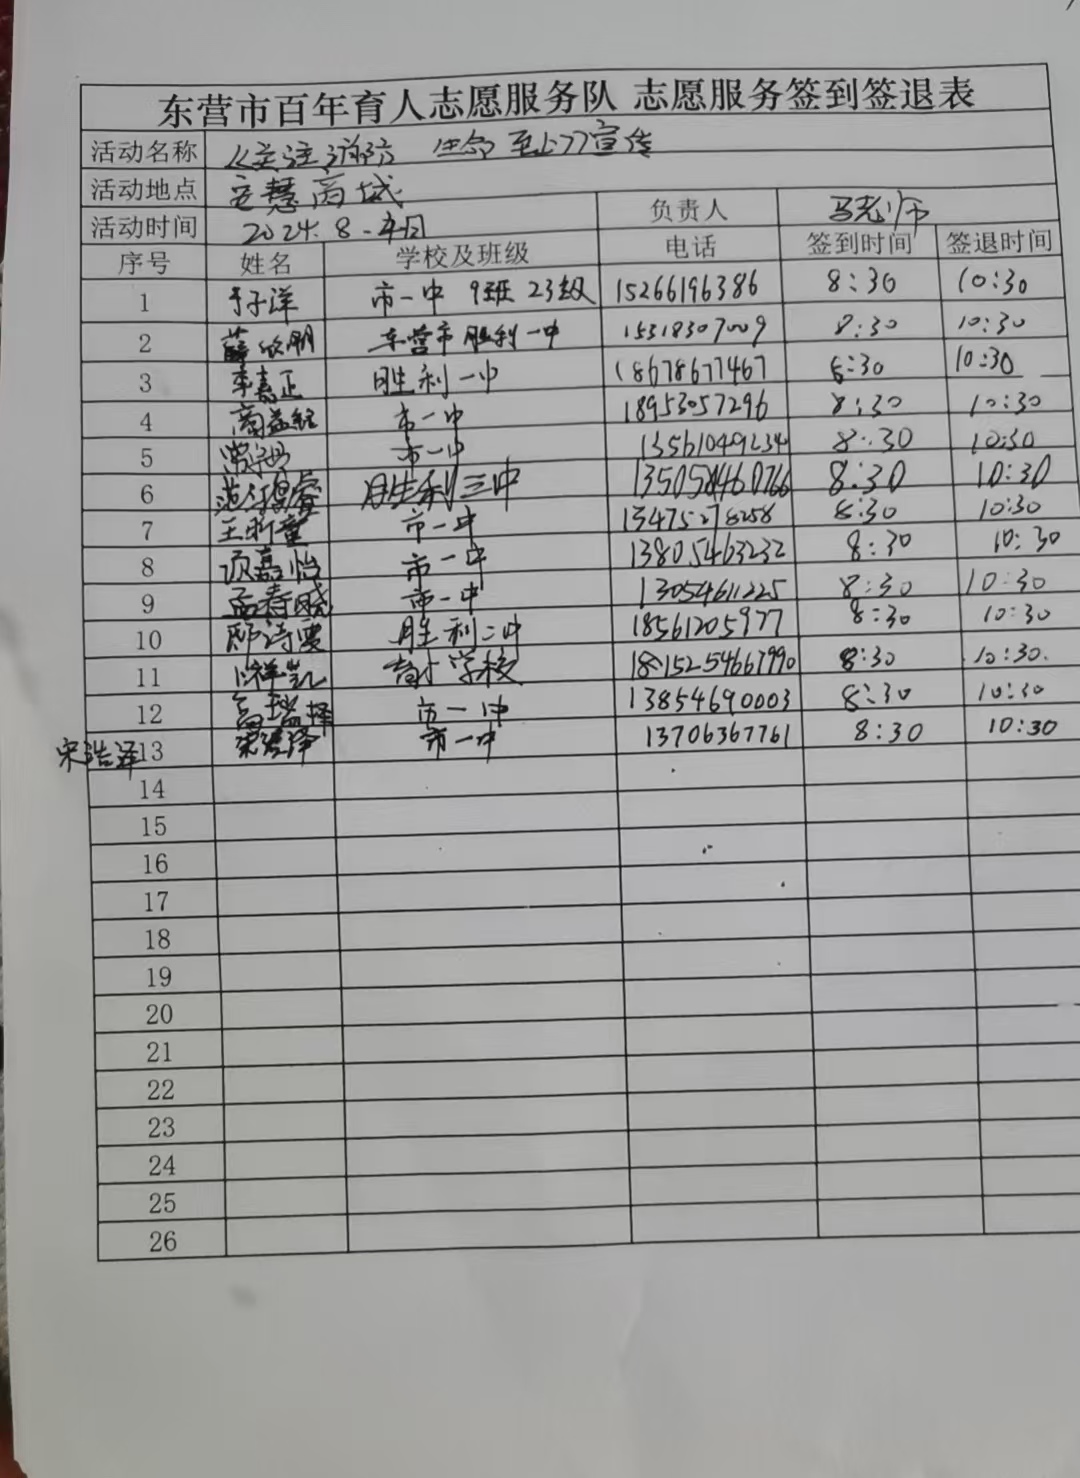 东营市百年育人志愿服务队 志愿服务签到签退表
活动名称 《关注消防 生命至上》宣传
活动地点 安慧商城
活动时间 2024.8. 负责人 马老师
序号 姓名 学校及班级 电话 签到时间 签退时间
1 于子洋 市一中 9班 23级 15266196386 8:30 10:30
2 薛欣朋 东营市胜利一中 15318307009 8:30 10:30
3 李嘉正 胜利一中 18678677467 8:30 10:30
4 商益 市一中 18953057296 8:30 10:30
5 市一中 13561049234 8:30 10:30
6 范 睿 胜利三中 8:30 10:30
7 王昕童 市一中 13475278258 8:30 10:30
8 项嘉怡 市一中 13805463232 8:30 10:30
9 孟春晓 市一中 13054611225 8:30 10:30
10 邴诗雯 胜利二中 18561205977 8:30 10:30
11 祥凯 育才学校 15254667990 8:30 10:30
12 择 市一中 13854690003 8:30 10:30
宋浩泽 13 市一中 13706367761 8:30 10:30
14
15
16
17
18
19
20
21
22
23
24
25
26